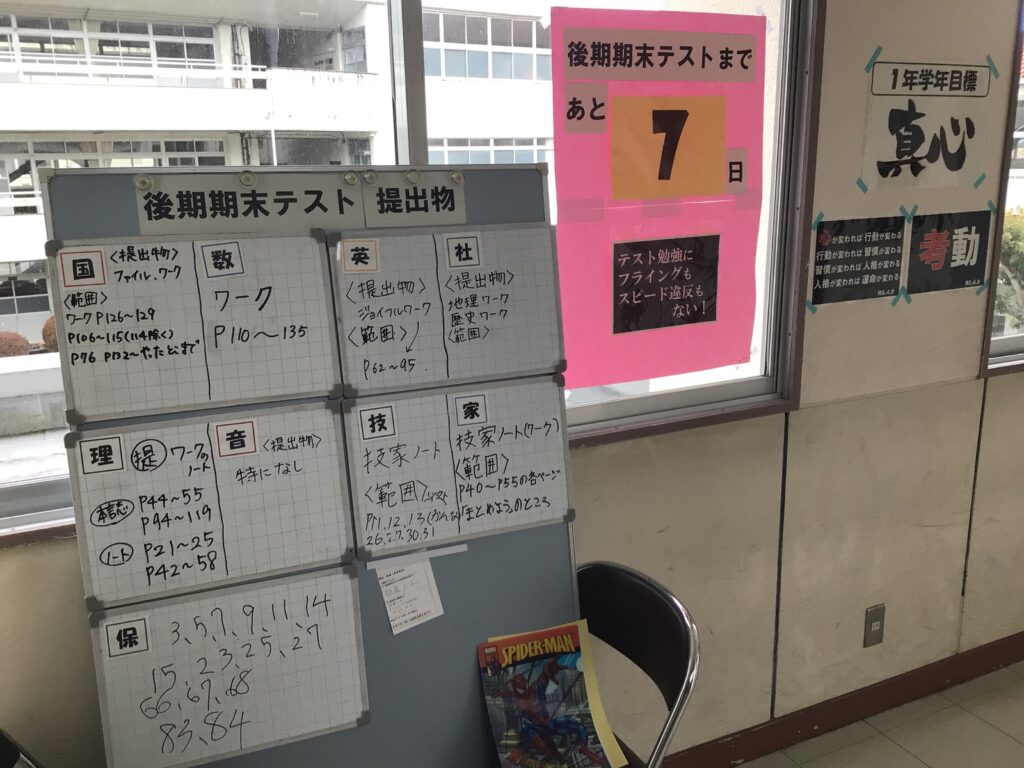 後期期末テスト 提出物
国
〈提出物〉
ファイル、ワーク
〈範囲〉
ワーク P126〜129
P106〜115(114除く)
P96 P132〜やったとこまで
数
ワーク
P110〜135
英
〈提出物〉
ジョイフルワーク
〈範囲〉
P62〜95
社
〈提出物〉
地理ワーク
歴史ワーク
〈範囲〉
理
提 ワーク
ノート
P44〜55
P94〜119
ノート
P21〜25
P42〜58
音
〈提出物〉
特になし
技
技家ノート
〈範囲〉
P11.12.13
26.27.30.31
家
技家ノート(ワーク)
〈範囲〉
P40〜P55の各ページ
「まとめよう」のところ
保
3、5、7、9、11、14
15、23、25、27
66、67、68
83、84
SPIDER-MAN
後期期末テストまで
あと
7
日
テスト勉強に
フライングも
スピード違反も
ない!
1年学年目標
真心
心が変われば 行動が変わる
行動が変われば 習慣が変わる
習慣が変われば 人格が変わる
人格が変われば 運命が変わる
R6.4.9
考動
R6.4.9